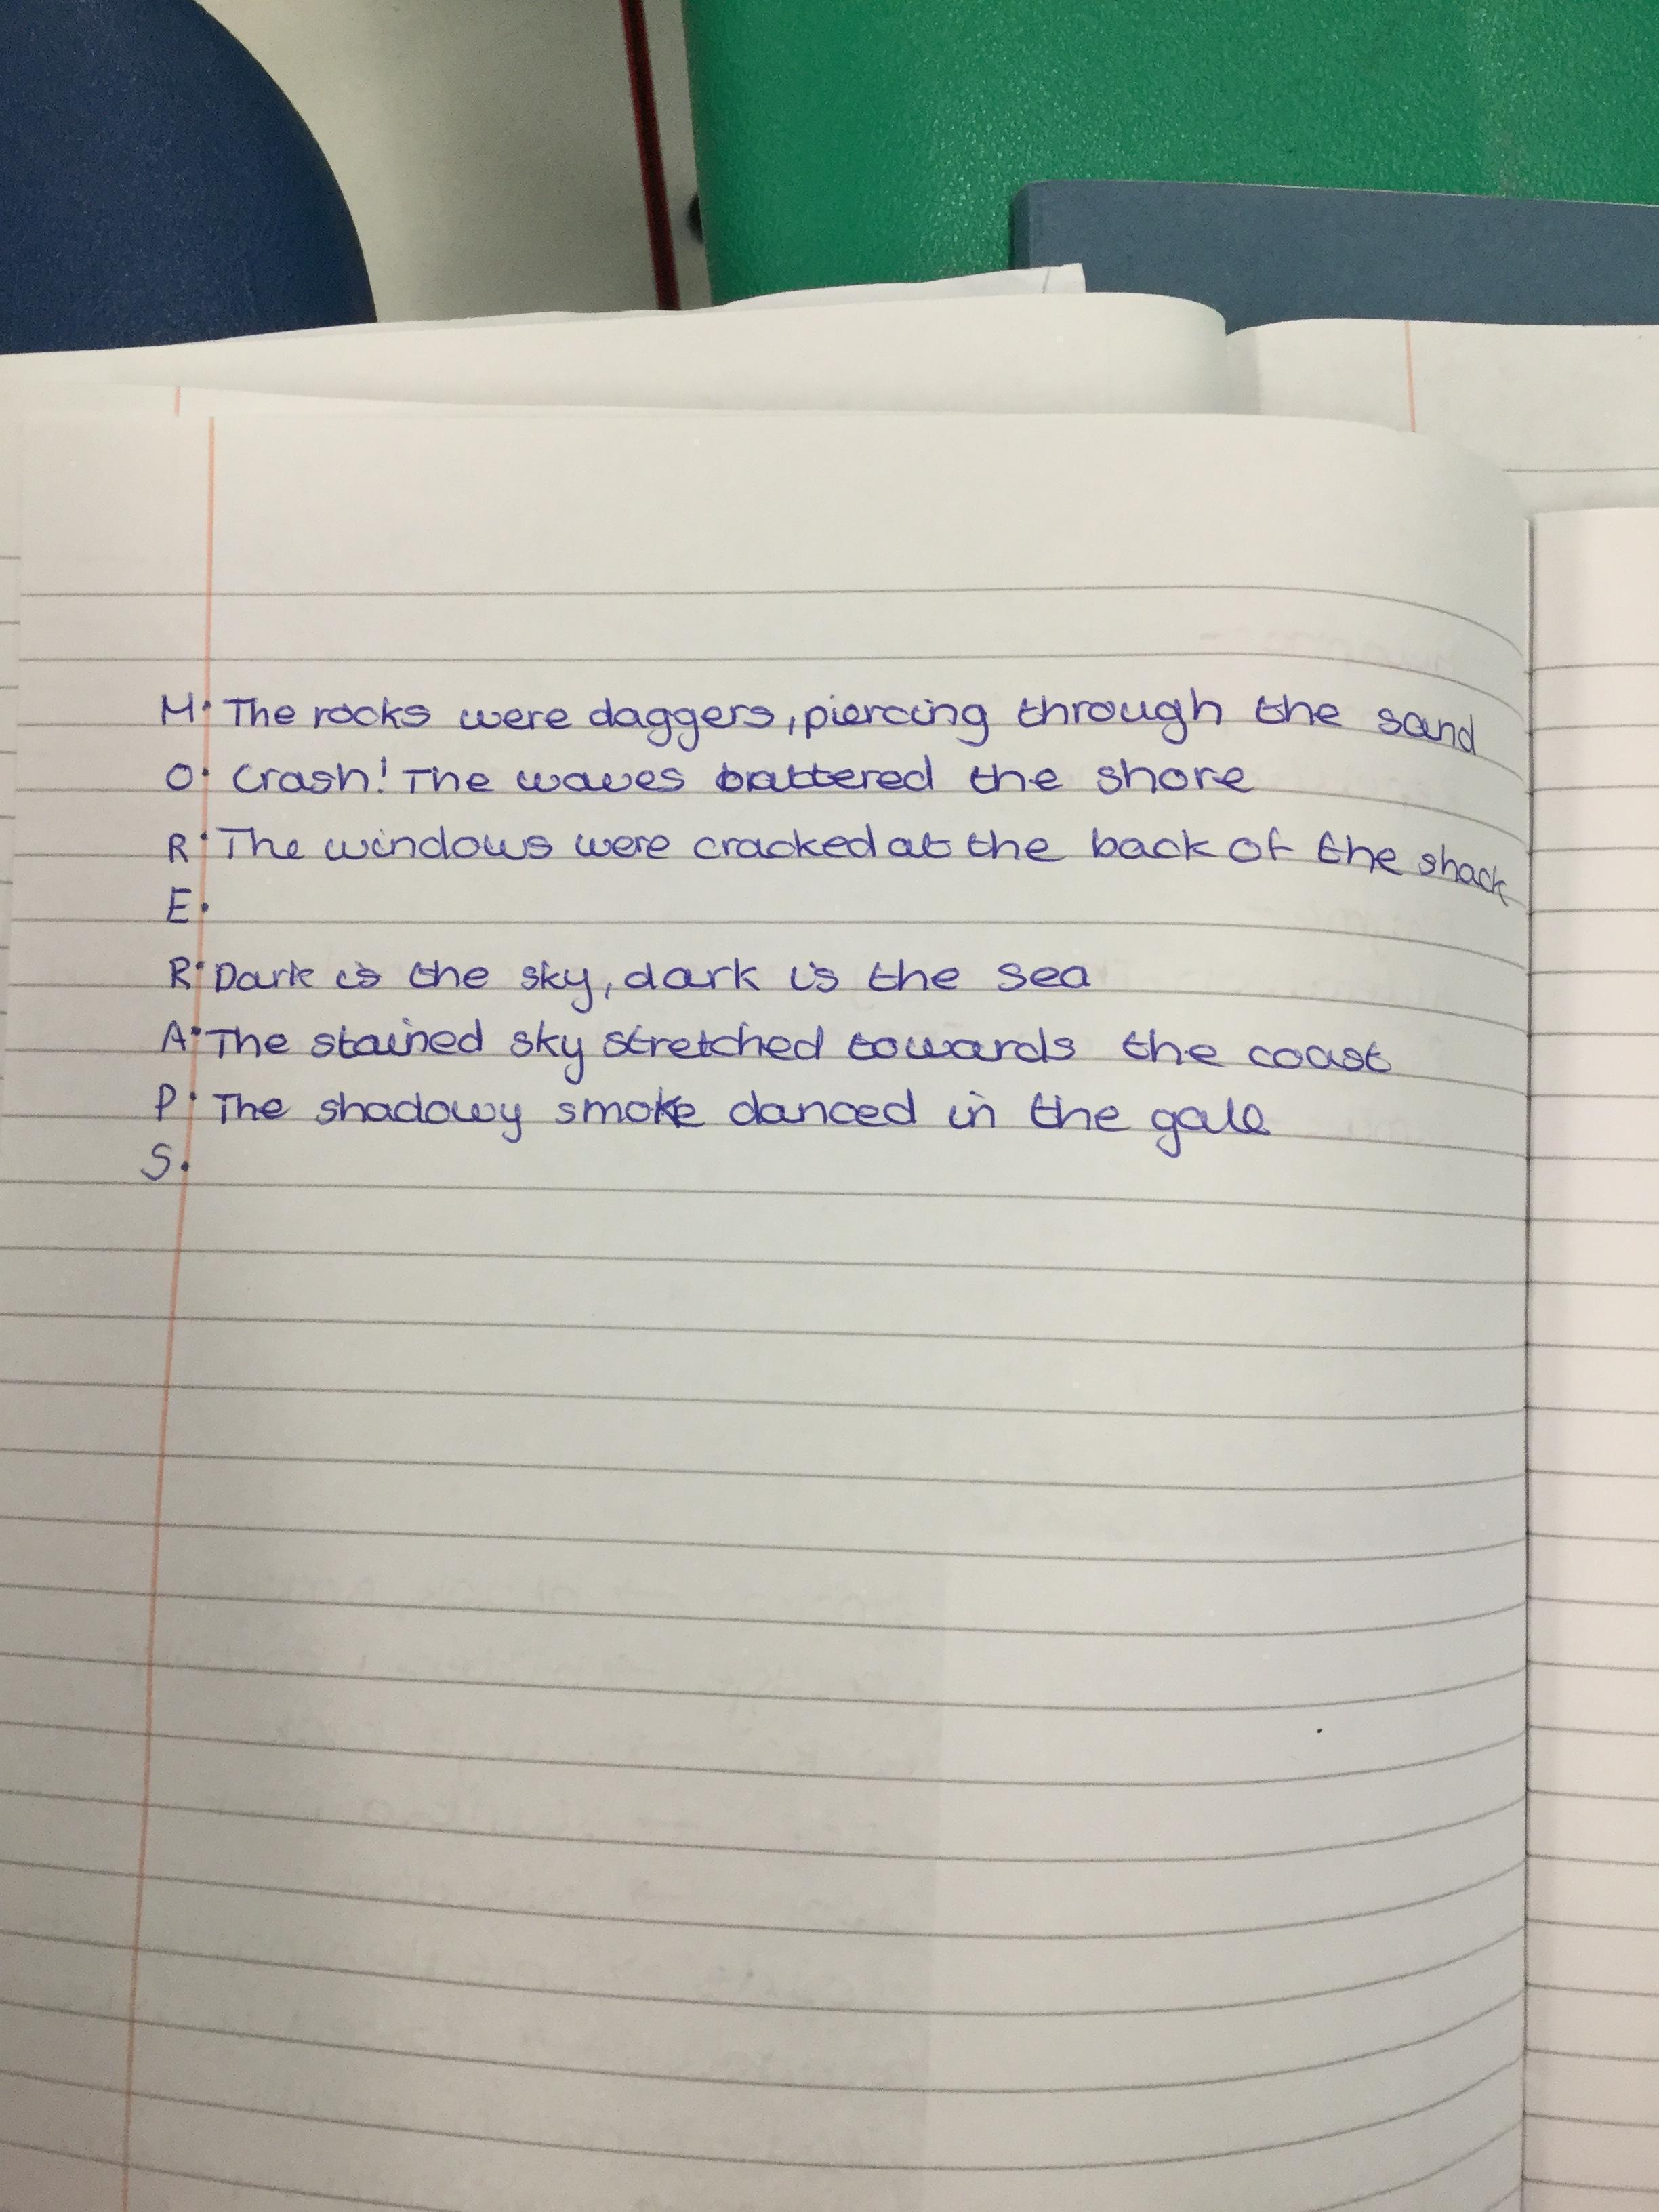 M. The rocks were daggers, piercing through the sand
O. Crash! The waves battered the shore
R. The windows were cracked at the back of the shack
E.
R. Dark is the sky, dark is the sea
A. The stained sky stretched towards the coast
P. The shadowy smoke danced in the gale
S.